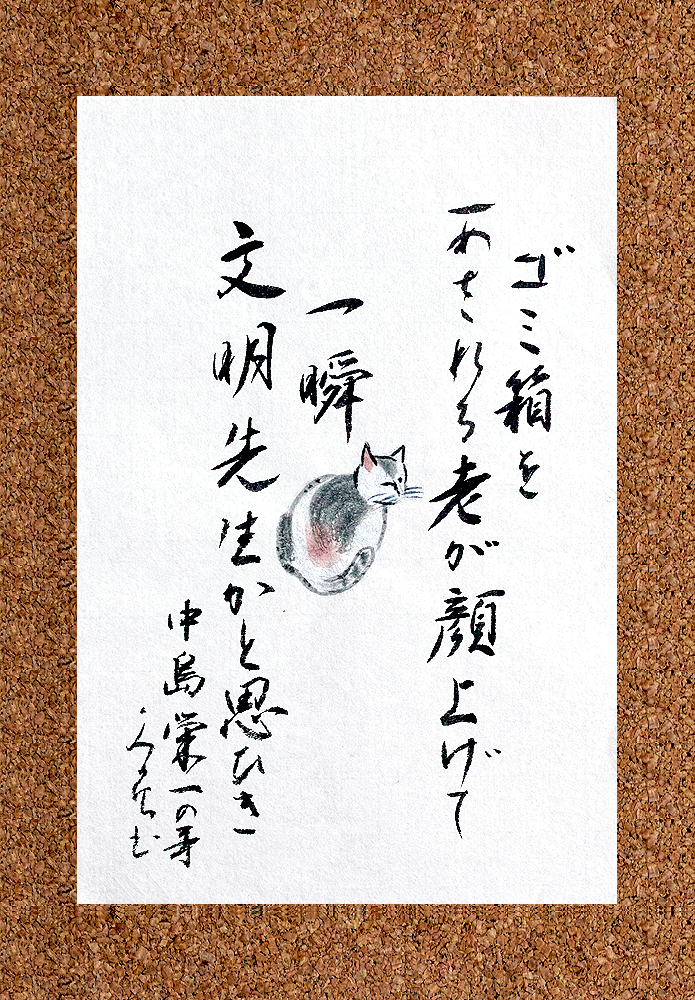 ゴミ箱を
あされる老が顔上げて
一瞬
文明先生かと思ひき
中島栄一の哥